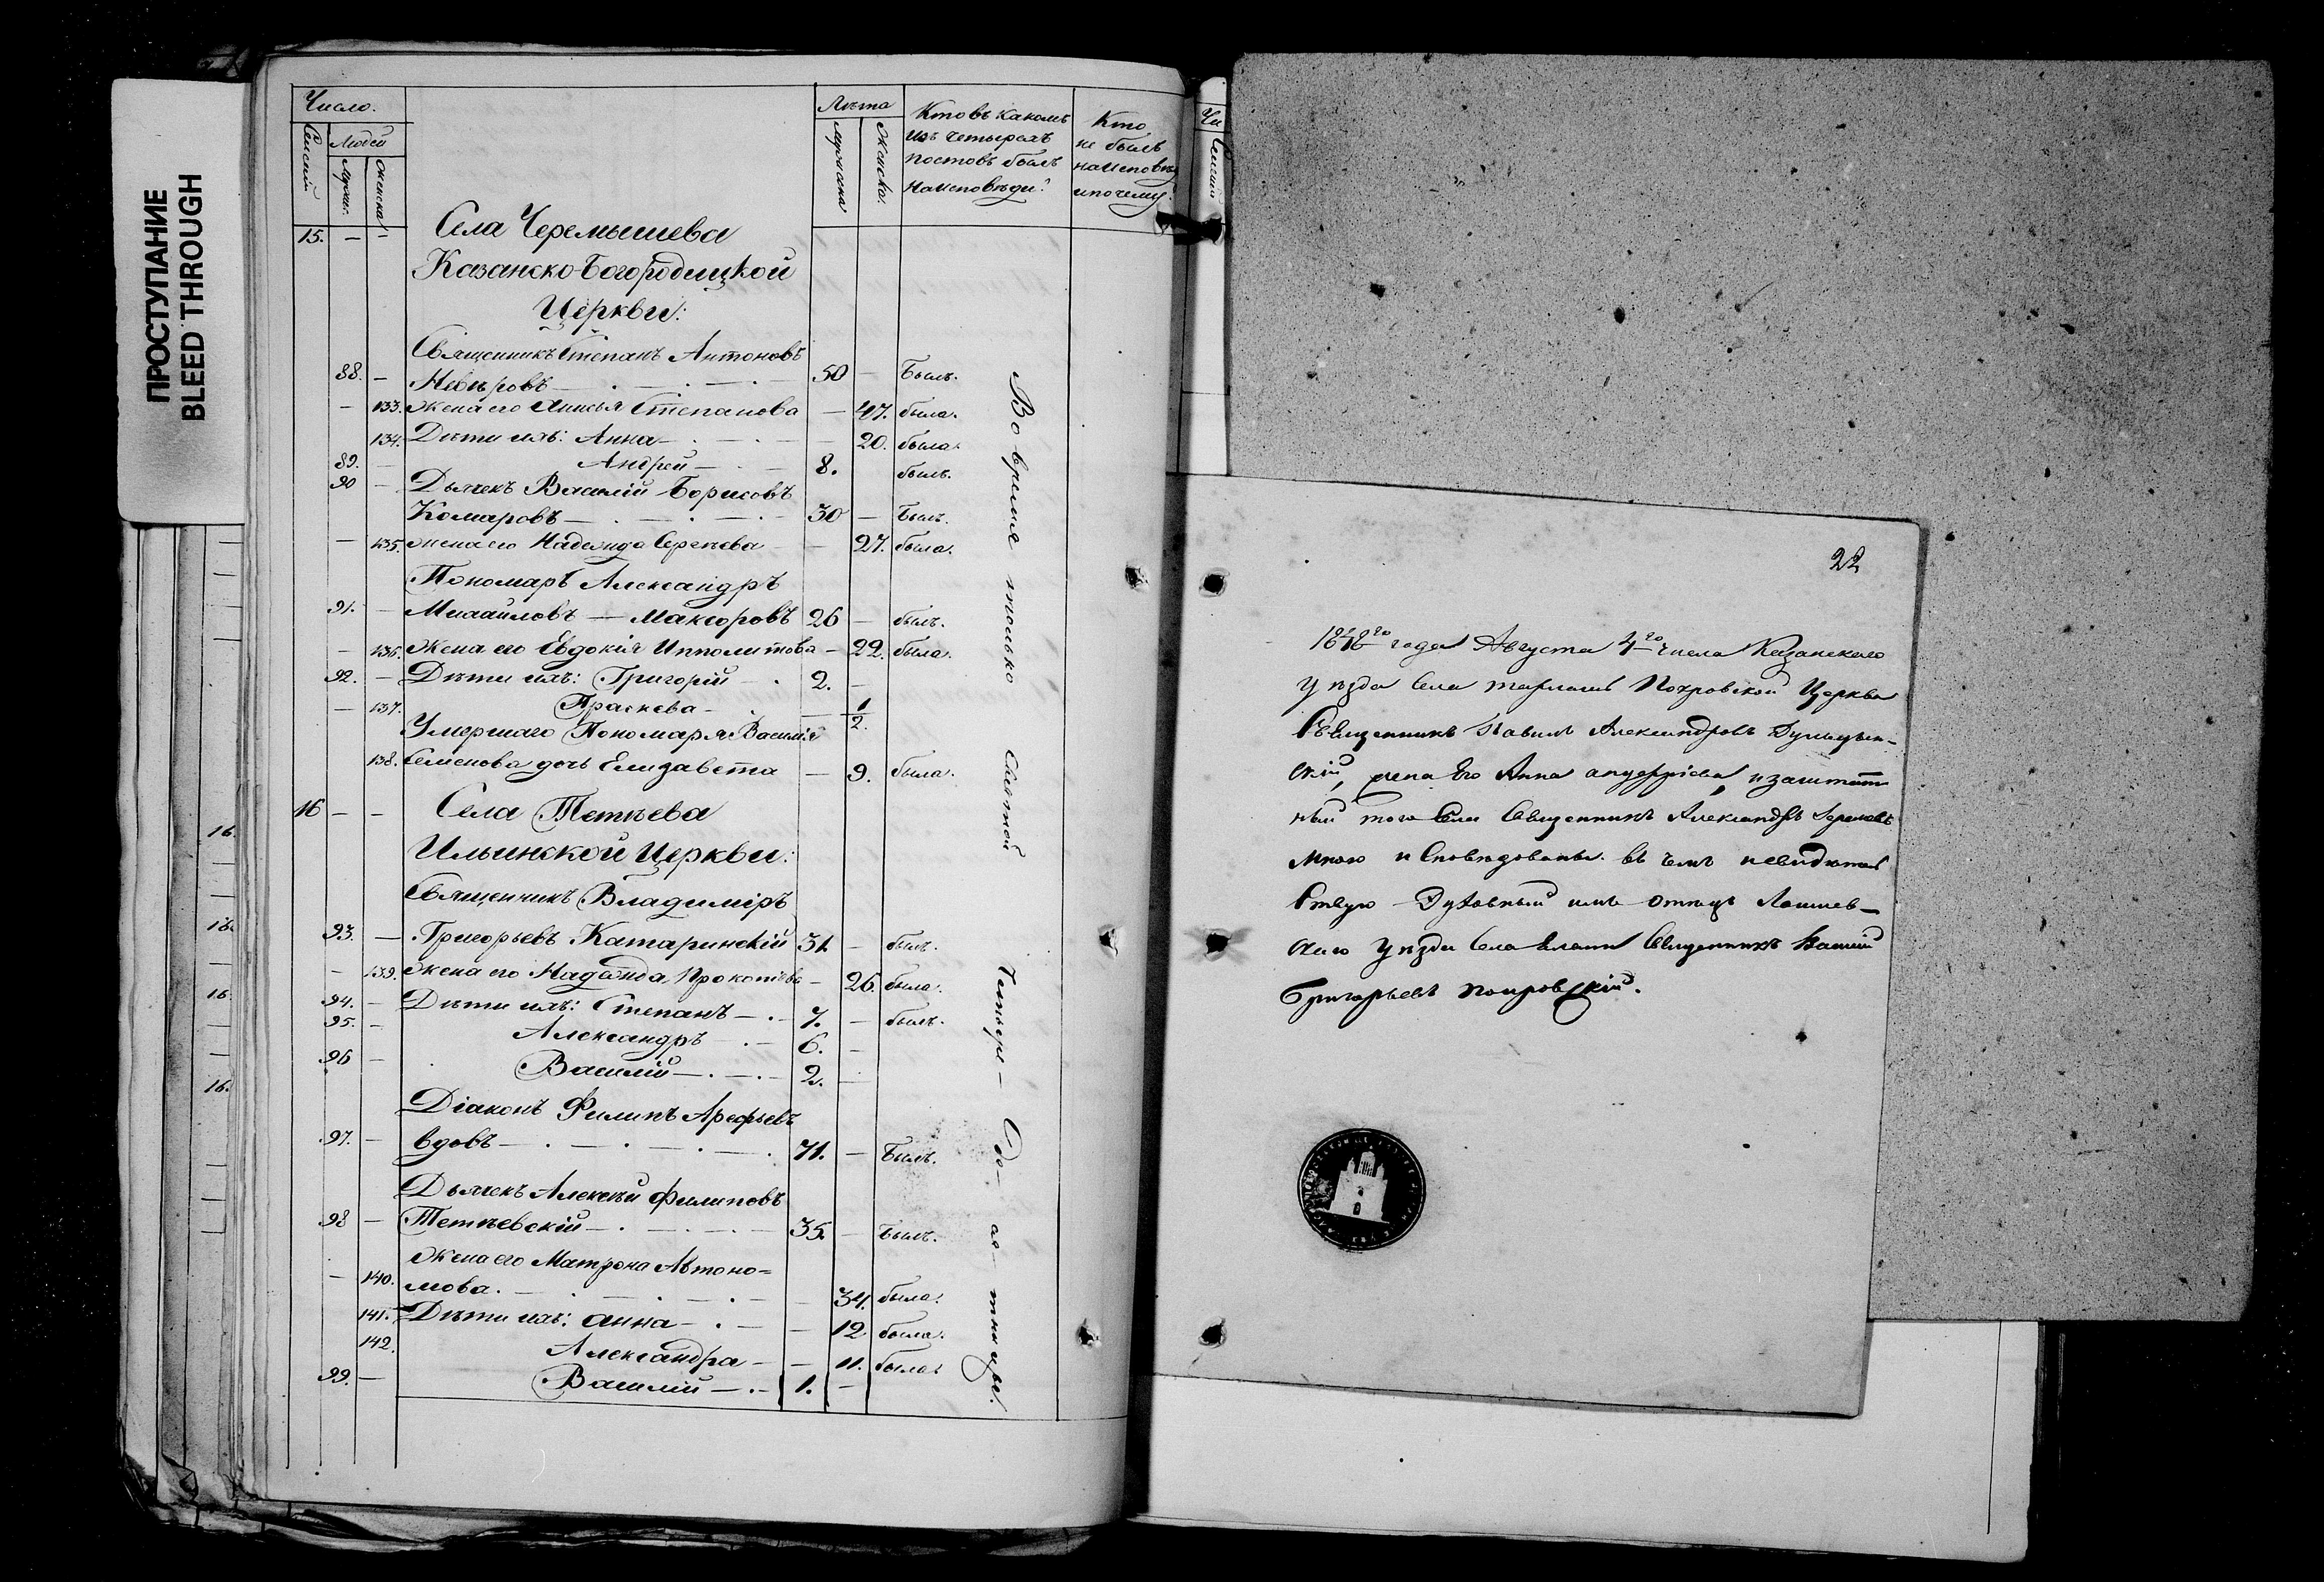 ПРОСТУПАНИЕ
BLEED THROUGH
Число.
Людей
Лѣта
Кто въ какомъ
изъ четырехъ
постовъ былъ
на исповѣди?
Кто
не былъ
на исповѣди
и почему?
15. — — Села Черемышева
Казанско-Богородицкой
Церкви:
Священникъ Степанъ Антоновъ
88. — Невѣровъ — 50 — Былъ.
— 133. Жена его Анисья Степанова — 47. была.
134. Дѣти ихъ: Анна — 20. была.
89. — Андрей — 8. былъ.
90 — Дьячекъ Василій Борисовъ
Комаровъ — 30 — Былъ.
— 135. жена его Надежда Сергѣева — 27. была.
Пономарь Александръ
91. — Михаиловъ — 26 — былъ.
— 136. Жена его Евдокія Ипполитова — 22. была.
92. — Дѣти ихъ: Григорій — 2. —
— 137. Праскева — 1/2.
Умершаго Пономаря Василія
138. Семенова дочь Елизавета — 9. была.
16 — — Села Тетѣева
Ильинской Церкви:
Священникъ Владиміръ
93. — Григорьевъ Катаринскій 31. — былъ.
— 139. Жена его Надежда Прокопьева — 26. была.
94. — Дѣти ихъ: Степанъ — 7. — былъ.
95. — Александръ — 6. —
96 — Василій — 2. —
Діаконъ Филипъ Арефьевъ
97. — вдовъ — 71. — Былъ.
Дьячекъ Алексѣй Филиповъ
98 — Тетѣевскій — 35. — Былъ.
Жена его Матрона Автоно=
— 140. мова. — 34. была.
141. Дѣти ихъ: Анна — 12. была.
142. Александра — 11. была.
99. — Василій — 1. —
Во время только Святой Четыре- де- ся- тницы.
22
1848го года Августа 4го числа Казанскаго
уѣзда села Покровской Церкви
Священникъ Павелъ Александровъ
скій, жена Его Анна Андреева, и заштат
ный того села Священникъ Александръ
мною исповѣданы. въ чемъ и свидѣтель
ствую Духовный ихъ отецъ Лаишев-
скаго уѣзда села Священникъ Василій
Григорьевъ Покровскій.